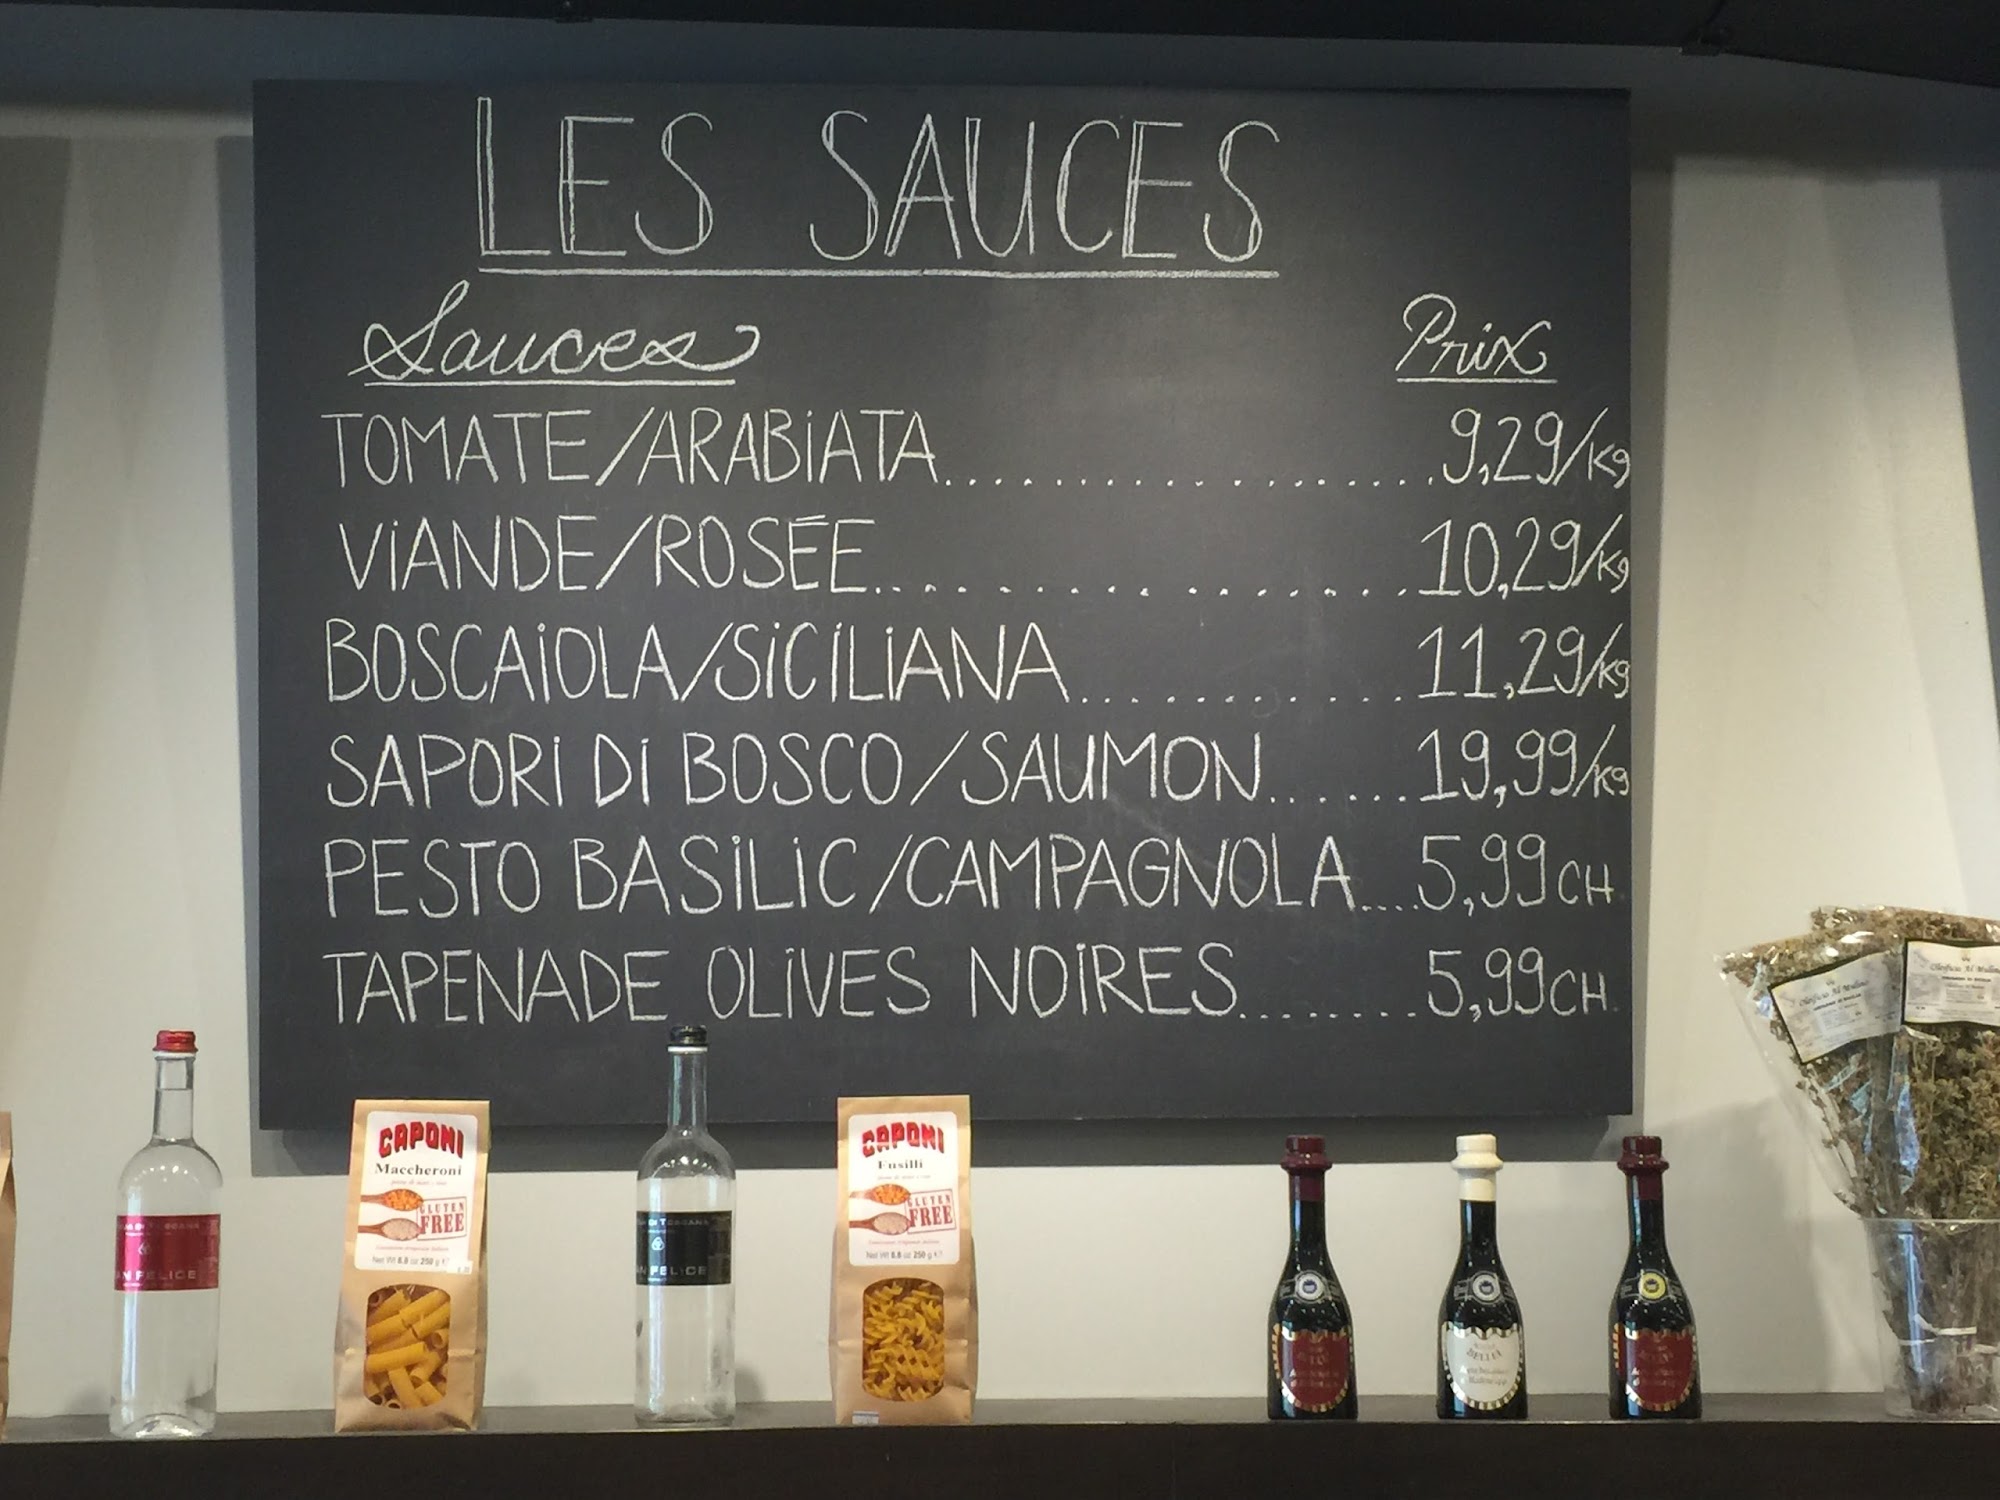 LES SAUCES
Sauces Prix
TOMATE/ARABIATA..................9,29/Kg
VIANDE/ROSÉE..............10,29/Kg
BOSCAIOLA/SICILIANA............11,29/Kg
SAPORI DI BOSCO/SAUMON.......19,99/Kg
PESTO BASILIC/CAMPAGNOLA....5,99CH.
TAPENADE OLIVES NOIRES........5,99CH.
CAPONI
Maccheroni
GLUTEN
FREE
Net Wt 8.8 oz 250 g e
CAPONI
Fusilli
GLUTEN
FREE
Net Wt 8.8 oz 250 g e
DI TOSCANA
AN FELICE
DI TOSCANA
AN FELICE